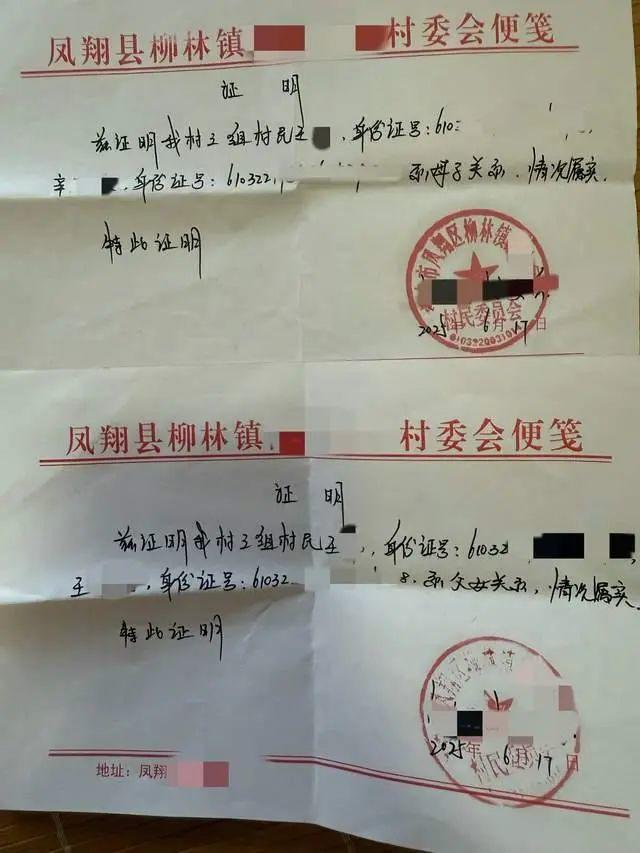 凤翔县柳林镇 村委会便笺
证 明
兹证明我村三组村民王 ，身份证号:610
辛 ，身份证号:610322 系母子关系，情况属实。
特此证明
市凤翔区柳林镇
村民委员会
2025年6月17日
凤翔县柳林镇 村委会便笺
证 明
兹证明我村三组村民王 ，身份证号:61032
王 ，身份证号:61032 8.系父女关系，情况属实。
特此证明
村民
2025年6月17日
地址：凤翔